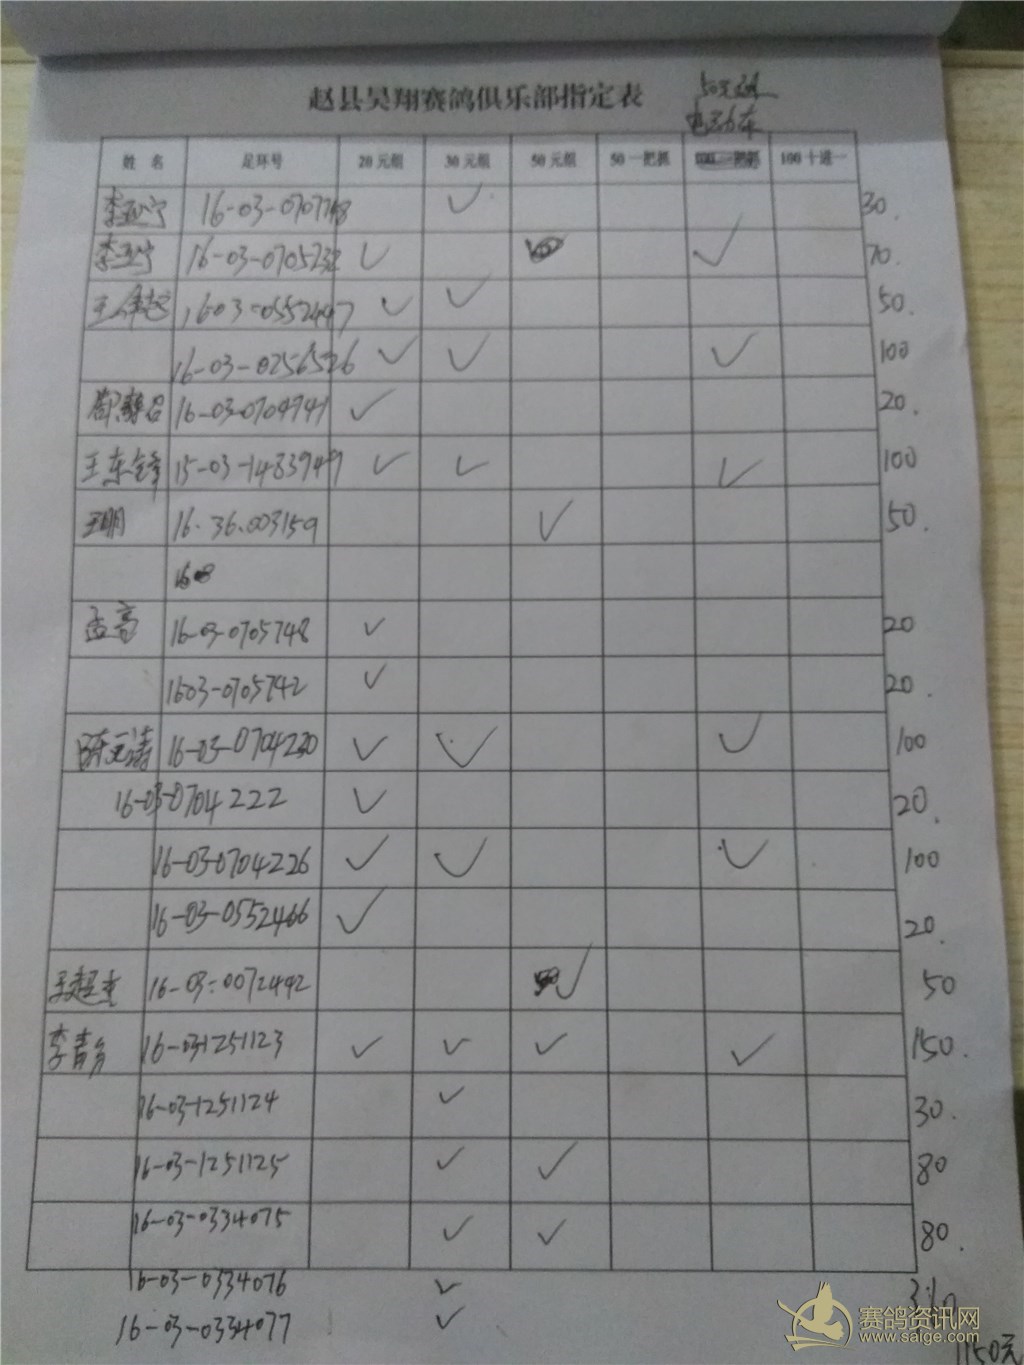 赵县昊翔赛鸽俱乐部指定表
50元组
电动车
姓 名 足环号 20元组 30元组 50元组 50一把抓 一把抓 100十进一
李亚宁 16-03-0707748 ✓ 30.
李亚宁 16-03-0705232 ✓ ✓ 70.
王 16-03-0552447 ✓ ✓ 50.
16-03-0256526 ✓ ✓ ✓ 100
16-03-0704741 ✓ 20.
王东锋 15-03-1483949 ✓ ✓ ✓ 100
王明 16.36.003159 ✓ 50.
16
孟高 16-03-0705748 ✓ 20
1603-0705742 ✓ 20.
陈元涛 16-03-0704230 ✓ ✓ ✓ 100
16-03-0704222 ✓ 20.
16-03-0704226 ✓ ✓ ✓ 100
16-03-0552466 ✓ 20.
王超杰 16-03-0072492 ✓ 50
李青 16-03-1251123 ✓ ✓ ✓ ✓ 150.
16-03-1251124 ✓ 30.
16-03-1251125 ✓ ✓ 80
16-03-0334075 ✓ ✓ 80.
16-03-0334076 ✓
16-03-0334077 ✓
1150元
赛鸽资讯网
www.saige.com